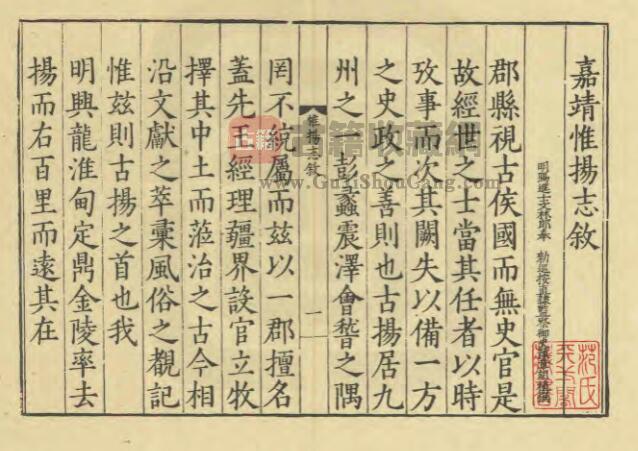 嘉靖惟揚志敘
明賜進士文林郎奉 勅巡按直隸監察御
郡縣視古侯國而無史官是
故經世之士當其任者以時
攷事而次其闕失以備一方
之史政之善則也古揚居九
州之一彭蠡震澤會稽之隅
惟揚志敘
一
罔不統屬而茲以一郡擅名
蓋先王經理疆界設官立牧
擇其中土而蒞治之古今相
沿文獻之萃彙風俗之覩記
惟茲則古揚之首也我
明興龍淮甸定鼎金陵率去
揚而右百里而遠其在
范氏
天一閣
古籍
古籍收藏網
www.GuJiShouCang.com